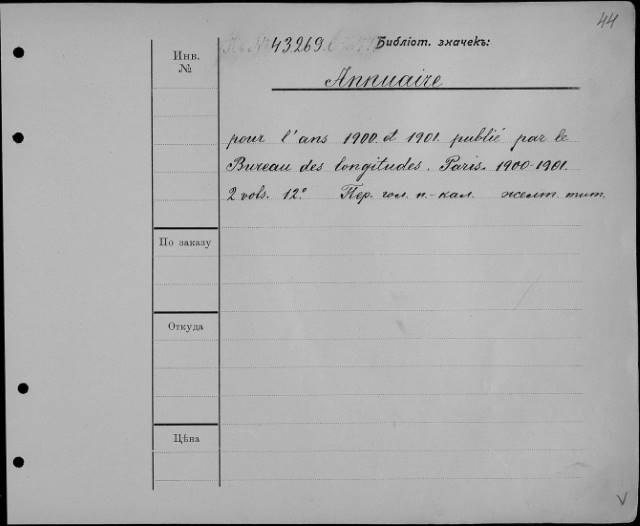 44
43.269. Библіот. значекъ:
Инв. №
Annuaire
pour l'ans 1900 et 1901 publié par le
Bureau des longitudes. Paris. 1900-1901.
2 vols. 12° Пер. гол. п.-кал. желт. тит.
По заказу
Откуда
Цѣна
V